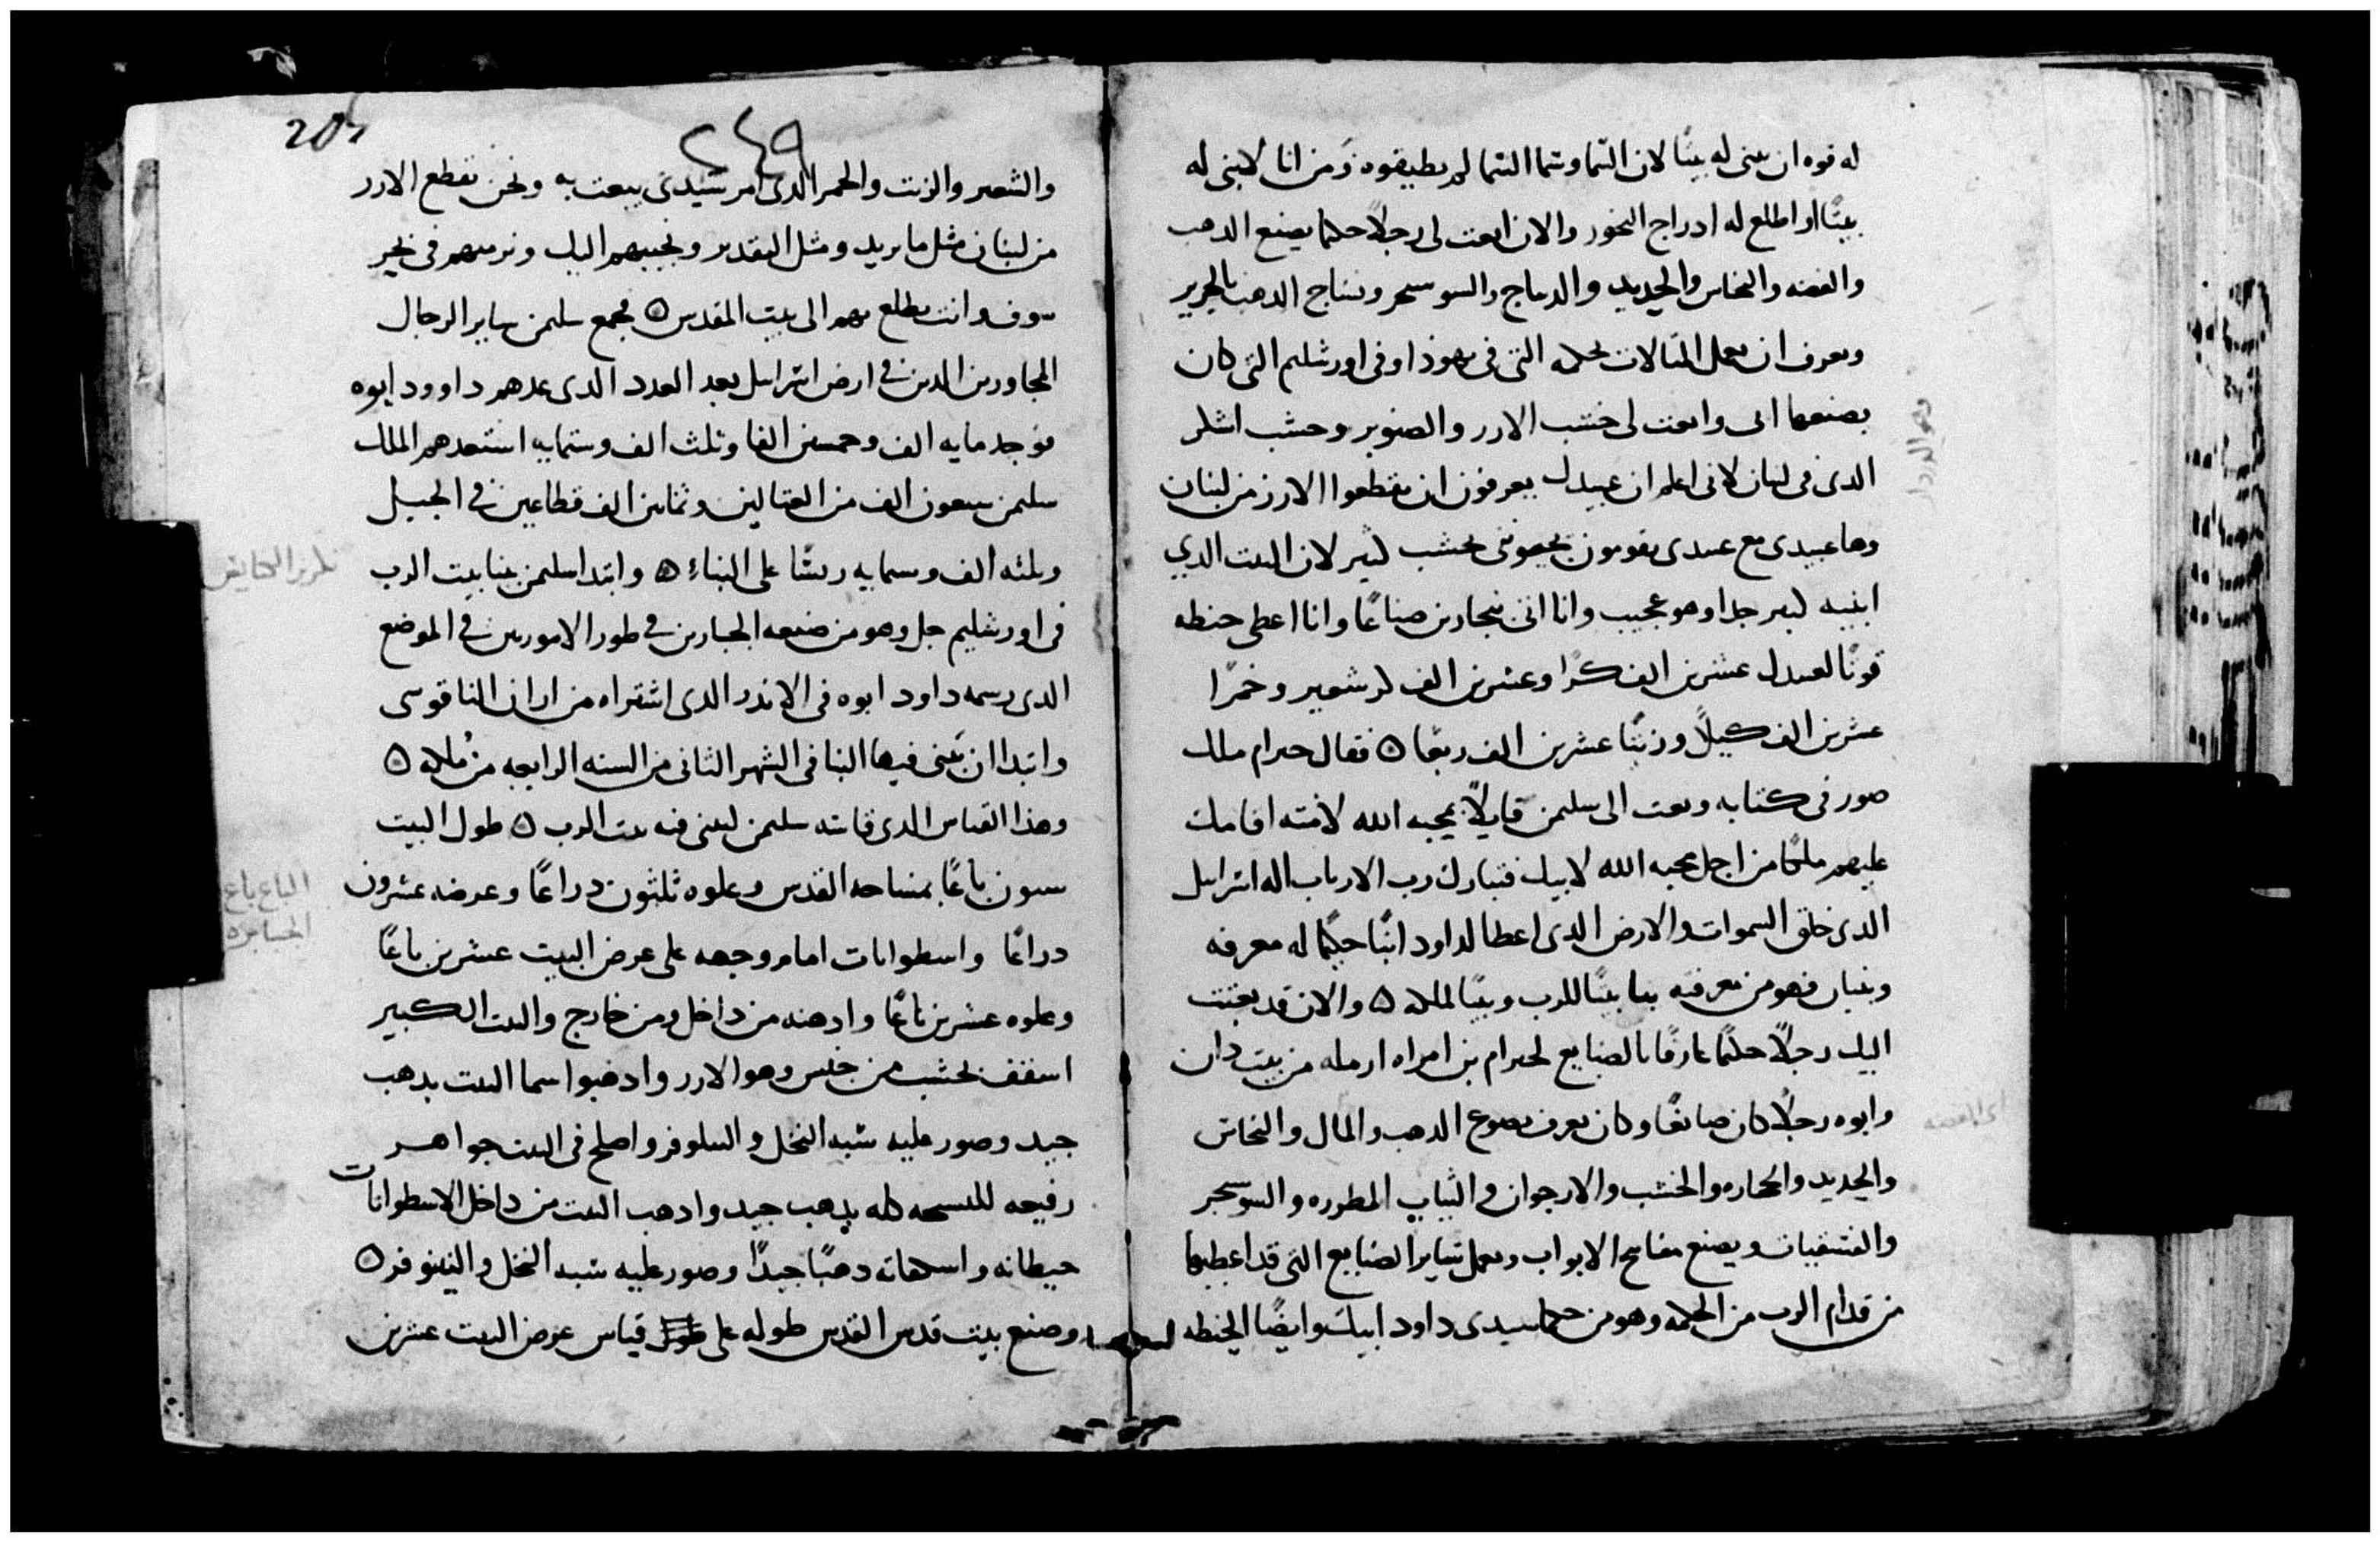 له قوه ان يبنى له بيتًا لان السما وسما السما لم يطيقوه ومن انا لابنى له
بيتًا او اطلع له ادراج البخور والان ابعت لى رجلاً حكيما يصنع الدهب
والفضه والنحاس والحديد والديباج والسوسحر ونساج الدهب بالحرير
ويعرف ان يعمل المثالات بحكمه التى فى يهوذا وفى اورشليم التى كان
يصنعها ابى وابعت لى خشب الارز والصنوبر وخشب اشكر
الدى فى لبنان لانى اعلم ان عبيدك يعرفون ان يقطعوا الارز من لبنان
وها عبيدى مع عبيدك يقومون يجيونى بخشب كثير لان البيت الدي
ابنيه كبير جدا وهو عجيب وانا اتى بنجارين صناعًا وانا اعطى حنطه
قوتًا لعبيدك عشرين الف كرًا وعشرين الف كر شعير وخمرًا
عشرين الف كيلاً وزيتًا عشرين الف ربعًا ۵ فقال حيرام ملك
صور فى كتابه وبعت الى سليمن قايلاً بمحبه الله لامته اقامك
عليهم ملكًا من اجل محبه الله لابيك فتبارك رب الارباب اله اسرايل
الدى خلق السموات والارض الدى اعطا لداود ابنًا حكيمًا له معرفه
وبنيان فهو من معرفته بنا بيتًا للرب وبيتًا لملكه ۵ والان قد بعتت
اليك رجلاً حكيمًا عارفًا بالصنايع لحيرام بن امراه ارمله من بيت دان
وابوه رجلاً كان صايغًا وكان يعرف يصوغ الدهب والمال والنحاس
والحديد والحجاره والخشب والارجوان والثياب المطوره والسوسحر
والقشقيبات ويصنع مفاتيح الابواب ويعمل ساير الصنايع التى قد اعطيها
من قدام الرب من الحكمه وهو من حكما سيدى داود ابيك وايضًا الحنطه
وهو الدردار
اى الفضه
205
٢٤٩
والشعير والزيت والخمر الدى امر سيدى يبعت به ونحن نقطع الارز
من لبنان مثل ما يريد ومثل التقدير ونجيبهم اليك ونرميهم فى بحر
سوف وانت تطلع بهم الى بيت المقدس ۵ فجمع سليمن ساير الرجال
المجاورين الدين فى ارض اسرايل بعد العدد الدى عدهم داوود ابوه
فوجد مايه الف وخمسين الفا وثلث الف وستمايه استعدهم الملك
سليمن سبعون الف من العتالين وثمانين الف قطاعين فى الجبل
وثلثه الف وستمايه ريسًا على البناء ۵ وابتدا سليمن بنا بيت الرب
فى اورشليم جل وهو من ضيعه الجبارين فى طور الاموريين فى الموضع
الدى رسمه داود ابوه فى الاندر الدى اشتراه من اران الناقوسى
وابتدا ان يبنى فيها البنا فى الشهر الثانى من السنه الرابعه من ملكه ۵
وهذا القياس الدى قاسه سليمن ليبنى فيه بيت الرب ۵ طول البيت
ستون باعًا بمساحه القدس وعلوه ثلثون دراعًا وعرضه عشرون
دراعًا واسطوانات امام وجهه على عرض البيت عشرين باعًا
وعلوه عشرين باعًا وادهنه من داخل ومن خارج والبيت الكبير
اسقفه بخشب من جنس وهو الارز وادهنوا سما البيت بدهب
جيد وصور عليه شبه النخل والنيلوفر واصلح فى البيت جواهر
رفيعه للسبحه كله بدهب جيد وادهب البيت من داخل الاسطوانات
حيطانه واسكفاته دهبًا جيدًا وصور عليه شبه النخل والنينوفر ۵
وصنع بيت قدس القدس طوله على قياس عرض البيت عشرين
الباع باع